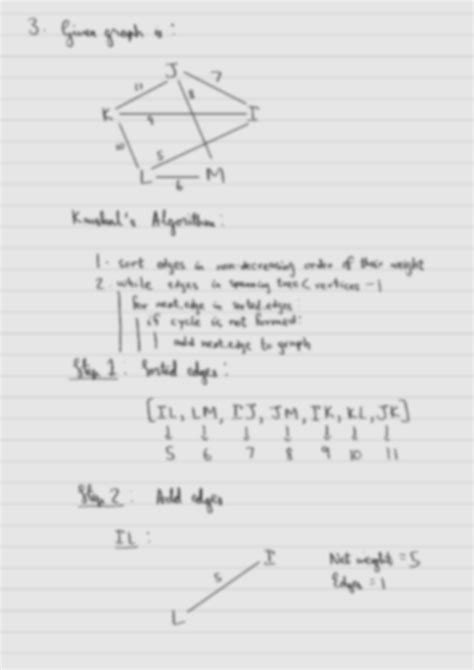 3. Given graph is :
J
11
7
8
K
9
I
10
5
L
6
M
Kruskal's Algorithm :
1. sort edges in non-decreasing order of their weight
2. while edges in spanning tree < vertices -1
for next.edge in sorted.edges :
if cycle is not formed:
add next.edge to graph
Step 1 : Sorted edges :
[IL, LM, IJ, JM, IK, KL, JK]
↓ ↓ ↓ ↓ ↓ ↓ ↓
5 6 7 8 9 10 11
Step 2 : Add edges
IL :
I
5
L
Net weight = 5
Edges = 1